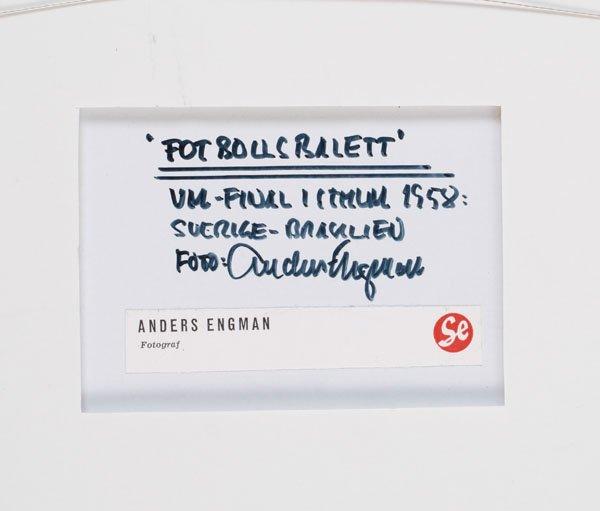 'FOTBOLLSBALETT'
VM-FINAL I STHLM 1958:
SVERIGE-BRASILIEN
FOTO: Anders Engman
ANDERS ENGMAN
Fotograf
Se